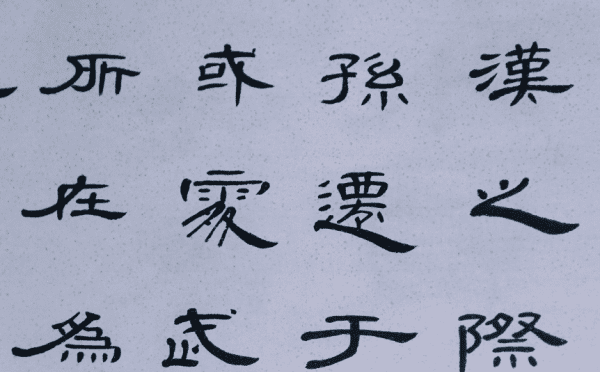 漢之際
孫遷于
或處武
所在為